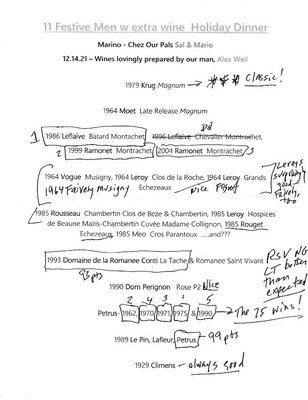 11 Festive Men w extra wine Holiday Dinner
Marino - Chez Our Pals Sal & Mario
12.14.21 – Wines lovingly prepared by our man, Alex Weil
1979 Krug Magnum *** Classic!
1964 Moet Late Release Magnum
1 1986 Leflaive Batard Montachet, 1996 Leflaive Chevalier Montrachet,
2 1999 Ramonet Montrachet, 2004 Ramonet Montrachet 3
1964 Vogue Musigny, 1964 Leroy Clos de la Roche, 1964 Leroy Grands
Echezeaux
1964 Faively Musigny
Nice
Leroys
good,
Faively,
too
1985 Rousseau Chambertin Clos de Beze & Chambertin, 1985 Leroy Hospices
de Beaune Mazis-Chambertin Cuvée Madame Collignon, 1985 Rouget
Echezeaux, 1985 Meo Cros Parantoux ....and???
1993 Domaine de la Romanee Conti La Tache & Romanee Saint Vivant
93 pts
RSV NG
LT better
than
expected
1990 Dom Perignon Rose P2 Nice
2 4 3 1 5
Petrus- 1962, 1970, 1971, 1975 & 1990 The 75 wins!
1989 Le Pin, Lafleur, Petrus - 99 pts
1929 Climens - always good